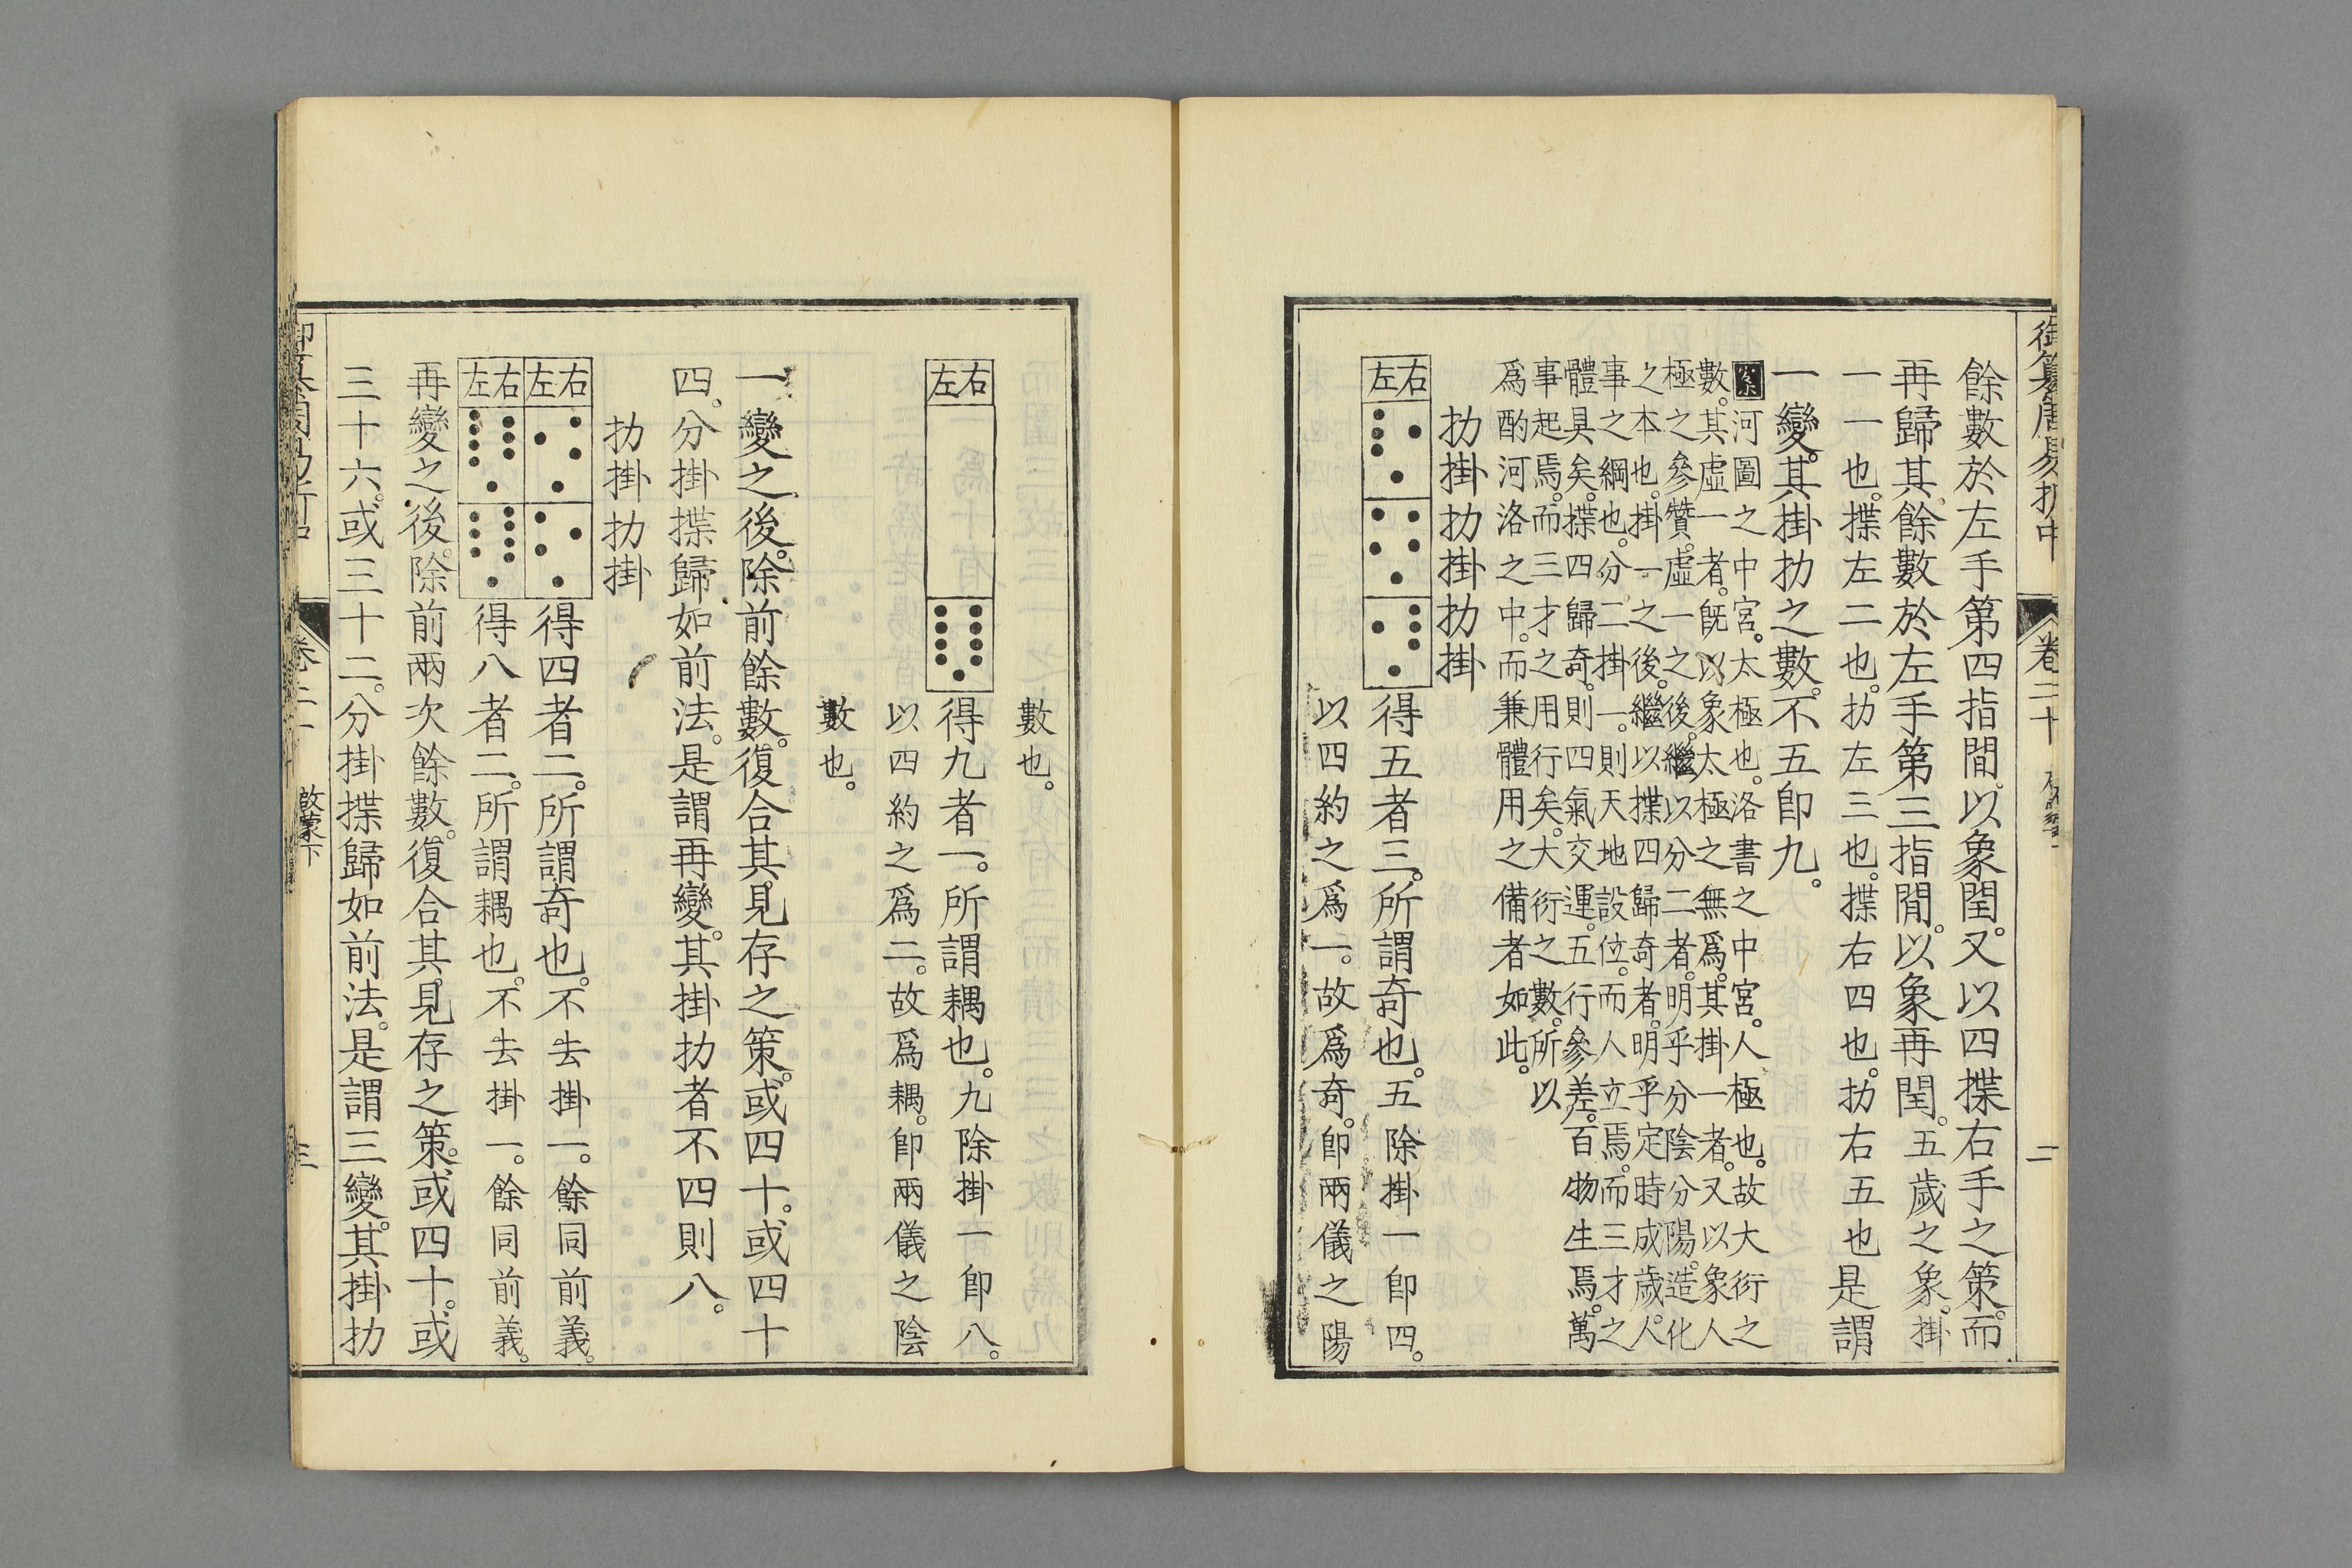 御纂周易折中 卷二十 二
餘數於左手第四指間。以象閏。又以四揲右手之策。而
再歸其餘數於左手第三指間。以象再閏。五歲之象。掛
一一也。揲左二也。扐左三也。揲右四也。扐右五也是謂
一變。其掛扐之數。不五卽九。
案河圖之中宮。太極也。洛書之中宮。人極也。故大衍之
數。其虛一者。旣以象太極之無爲。其掛一者。又以象人
極之參贊。虛一之後。繼以分二者。明乎分陰分陽。造化
之本也。掛一之後。繼以揲四歸奇者。明乎定時成歲。人
事之綱也。分二掛一。則天地設位。而人立焉。而三才之
體具矣。揲四歸奇。則四氣交運。五行參差。百物生焉。萬
事起焉。而三才之用行矣。大衍之數。所以
爲酌河洛之中。而兼體用之備者如此。
扐掛扐掛扐掛
右左 得五者三。所謂奇也。五除掛一卽四。
以四約之爲一。故爲奇。卽兩儀之陽
數也。
右左 得九者一。所謂耦也。九除掛一卽八。
以四約之爲二。故爲耦。卽兩儀之陰
數也。
一變之後。除前餘數。復合其見存之策。或四十。或四十
四。分掛揲歸如前法。是謂再變。其掛扐者不四則八。
扐掛扐掛
右左 得四者二。所謂奇也。不去掛一。餘同前義。
右左 得八者二。所謂耦也。不去掛一。餘同前義。
再變之後。除前兩次餘數。復合其見存之策。或四十。或
三十六。或三十二。分掛揲歸如前法。是謂三變。其掛扐
卷二十 啟蒙下 三